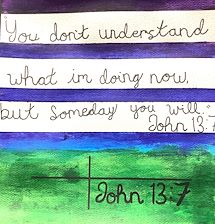 You don't understand
what im doing now,
but someday you will."
John 13:7
John 13:7